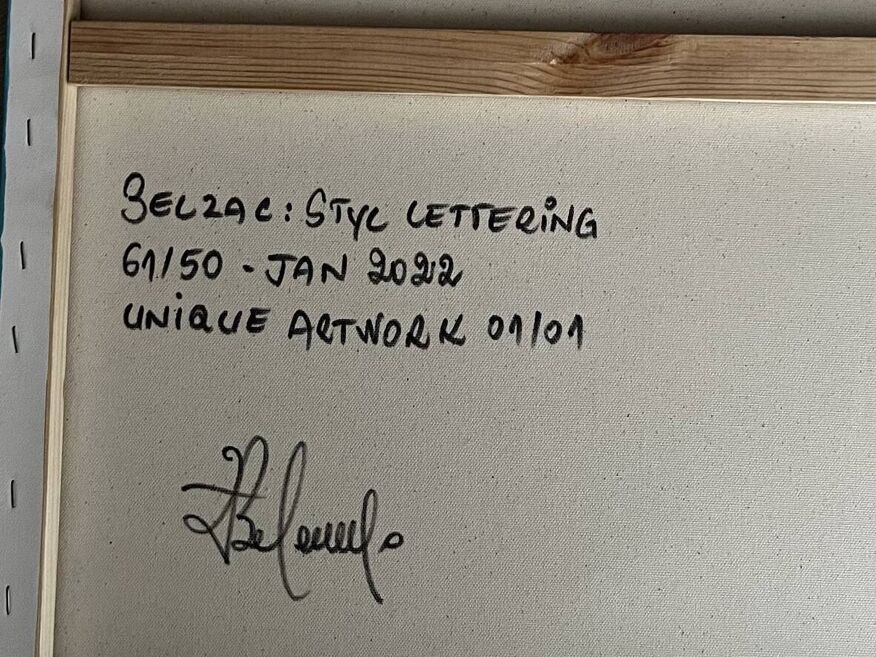 BELZAC: STYL LETTERING
61/50 - JAN 2022
UNiQUE ARTWORK 01/01